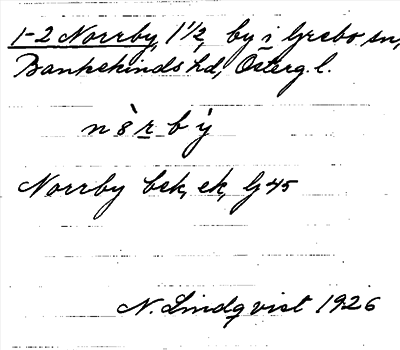 1-2 Norrby, 1 1/2, by i Grebo sn,
Bankekinds hd, Österg. l.
nὸ̣rbý
Norrby bsk, ek, G 45
N. Lindqvist 1926